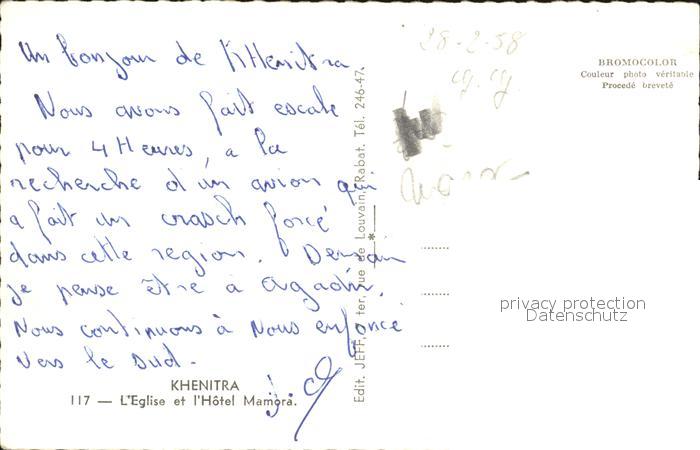 Un bonjour de KHenitra.
Nous avons fait escale
pour 4 Heures, a la
recherche d'un avion qui
a fait un crasch forcé
dans cette region. Demain
je pense être à Agadir.
Nous continuons à Nous enfoncé
vers le sud.
KHENITRA
117 — L'Eglise et l'Hôtel Mamora.
Edit. JEFF, ter, rue de Louvain, Rabat. Tél. 246-47.
28-2-58
BROMOCOLOR
Couleur photo véritable
Procedé breveté
privacy protection
Datenschutz